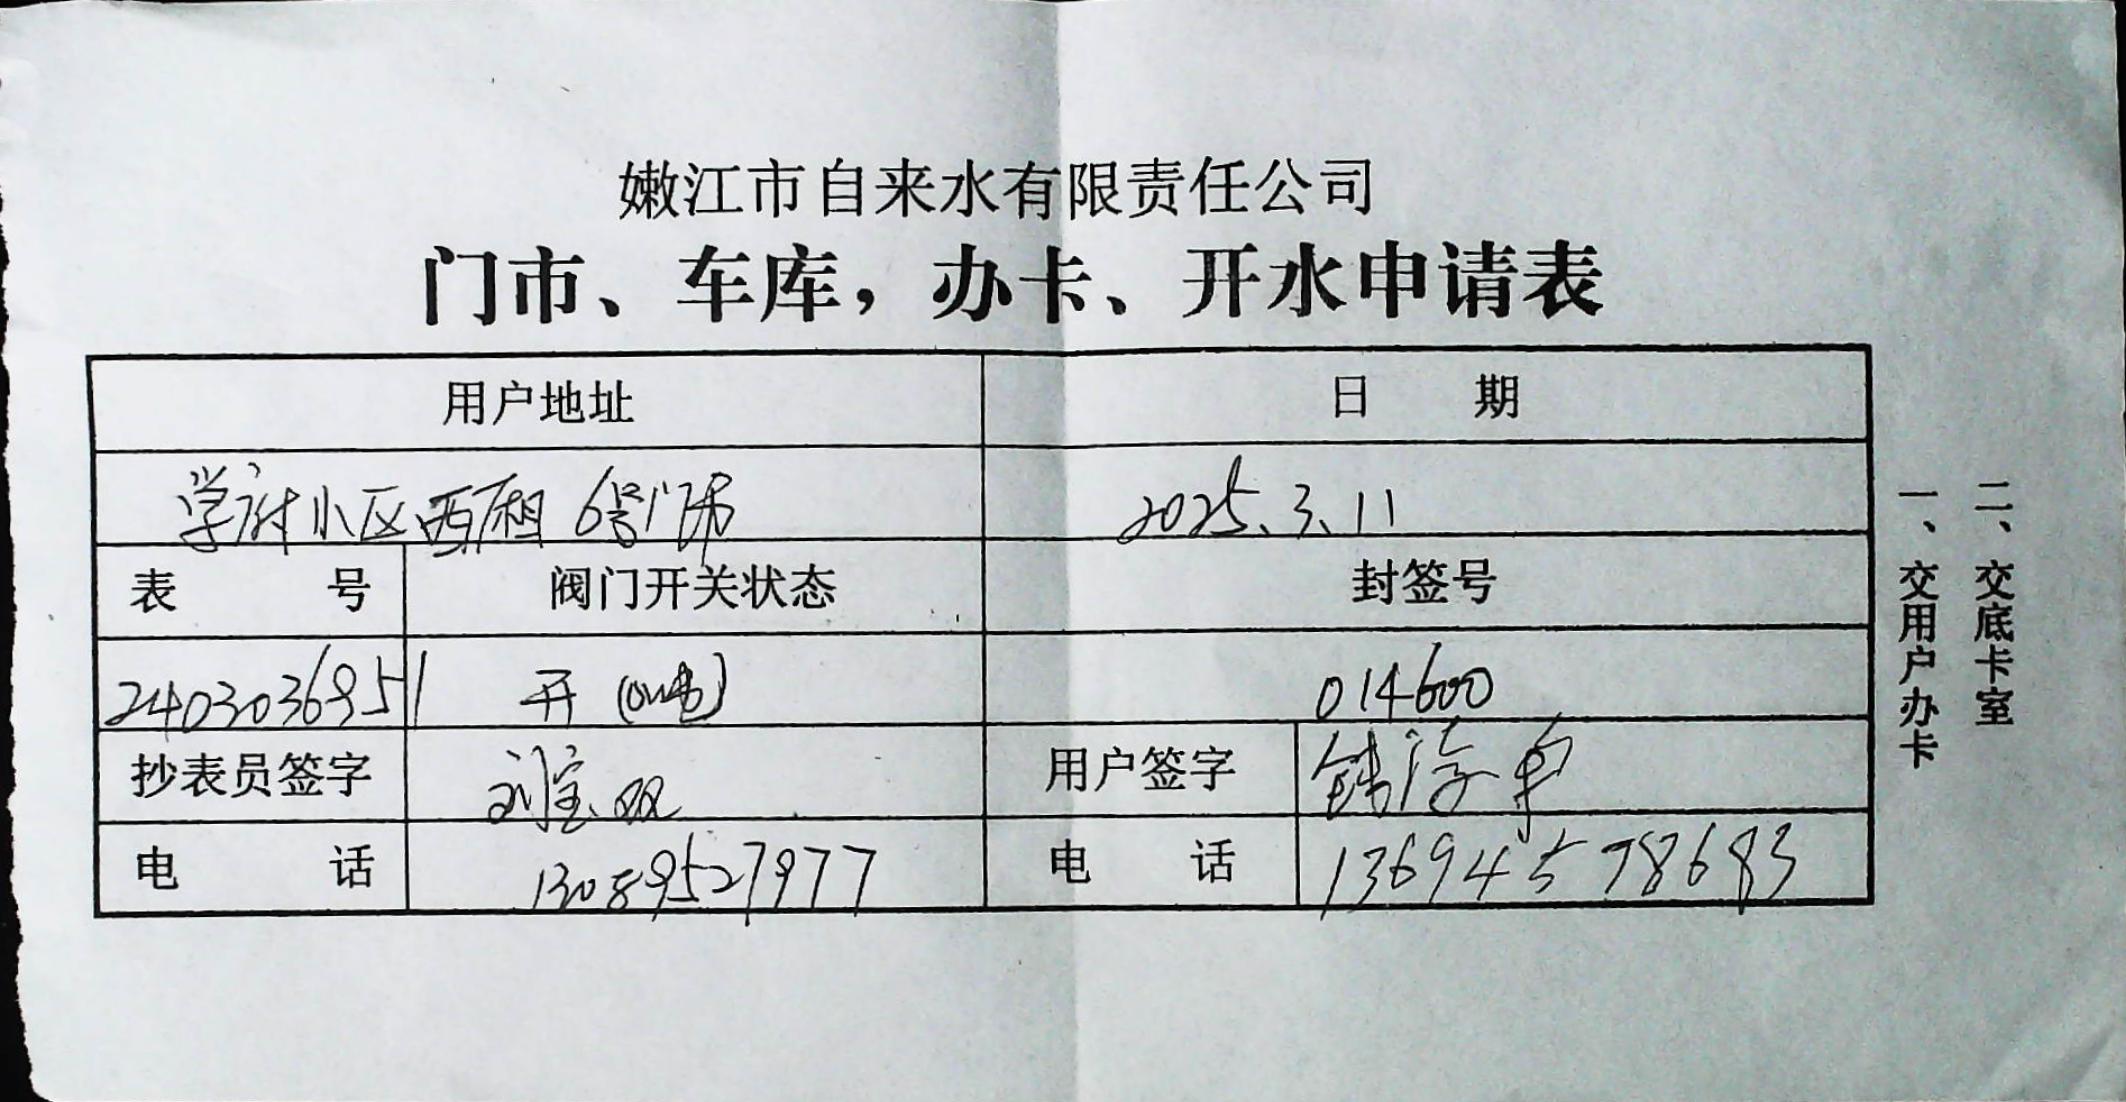 嫩江市自来水有限责任公司
门市、车库，办卡、开水申请表
用户地址 日 期
学府小区西厢 6号门市 2025.3.11
表 号 阀门开关状态 封签号
24030369511 开 014600
抄表员签字 刘宝双 用户签字
电 话 13089527977 电 话 13694578683
一、交用户办卡
二、交底卡室